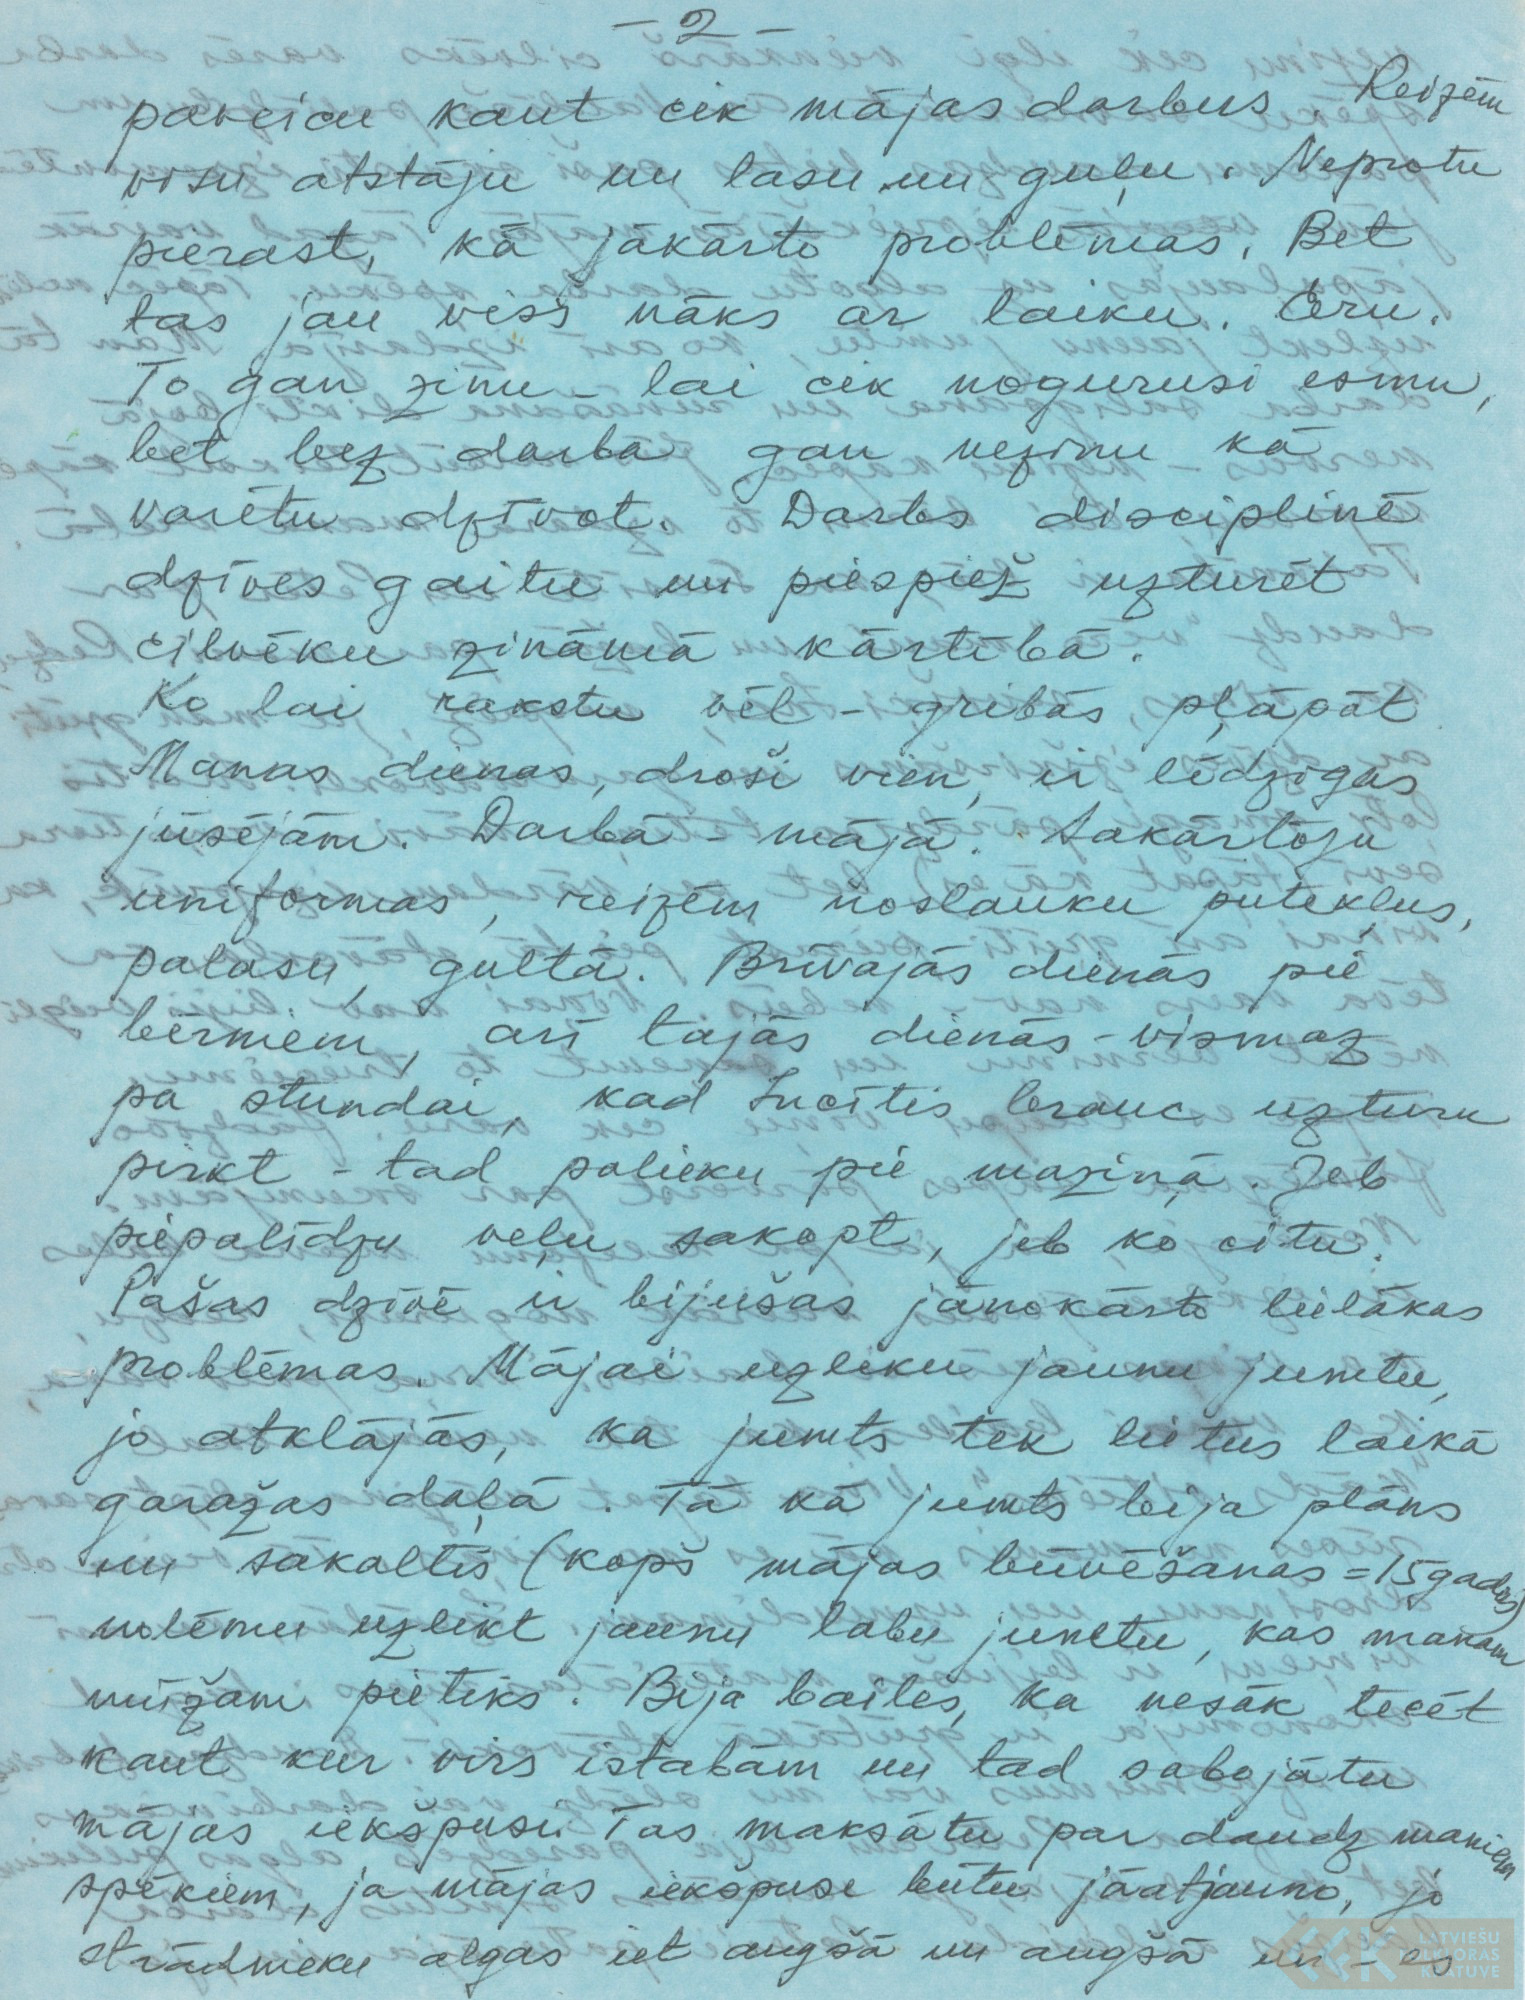 - 2 -
paveicu kaut cik mājas darbus. Reizēm
visu atstāju un lasu un guļu. Neprotu
pierast, kā jākārto problēmas. Bet
tas jau viss nāks ar laiku. Ceru.
To gan zinu - lai cik nogurusi esmu,
bet bez darba gan nezinu kā
varētu dzīvot. Darbs disciplinē
dzīves gaitu un piespiež uzturēt
cilvēku zināmā kārtībā.
Ko lai rakstu vēl - gribās pļāpāt
Manas dienas, droši vien, ir līdzīgas
jūsējām. Darbā - mājā. Sakārtoju
uniformas, reizēm noslauku putekļus,
palasu gultā. Brīvajās dienās pie
bērniem, arī tajās dienās - vismaz
pa stundai, kad Incītis brauc uzturu
pirkt - tad palieku pie maziņā. Jeb
piepalīdzu veļu sakopt, jeb ko citu.
Pašas dzīvē ir bijušas jānokārto lielākas
problēmas. Mājai uzliku jaunu jumtu,
jo atklājās, ka jumts tek lietus laikā
garažas daļā. Tā kā jumts bija plāns
un sakaltis (kopš mājas būvēšanas = 15 gadus)
nolēmu uzlikt jaunu labu jumtu, kas manam
mūžam pietiks. Bija bailes, ka nesāk tecēt
kaut kur virs istabām un tad sabojātu
mājas iekšpusi. Tas maksātu par daudz maniem
spēkiem, ja mājas iekšpuse būtu jāatjauno, jo
strādnieku algas iet augšā un augšā un - es
LATVIEŠU
FOLKLORAS
KRĀTUVE